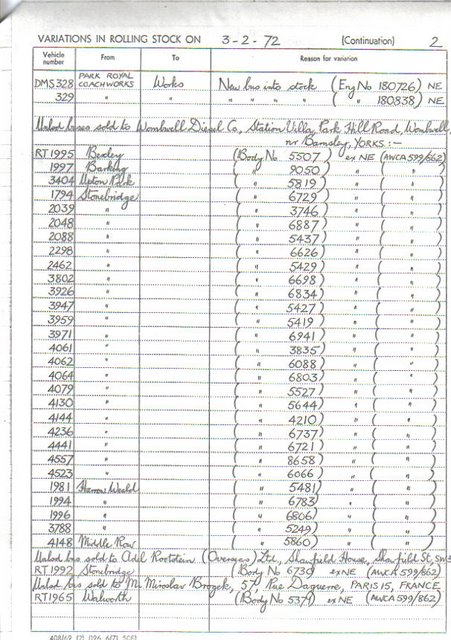 VARIATIONS IN ROLLING STOCK ON 3-2-72 (Continuation) 2
Vehicle number From To Reason for variation
DMS 328 PARK ROYAL COACHWORKS Works New bus into stock (Eng No 180726) NE
329 " " " " " " " ( " 180838) NE
Unlic buses sold to Wombwell Diesel Co, Station Villa, Park Hill Road, Wombwell,
nr Barnsley, YORKS :-
RT 1995 Bexley (Body No 5507) ex NE (AWCA 599/862)
1997 Barking ( " 9050) " " ( " )
3404 Upton Park ( " 5819) " " ( " )
1794 Stonebridge ( " 6729) " " ( " )
2039 " ( " 3746) " " ( " )
2048 " ( " 6887) " " ( " )
2088 " ( " 5437) " " ( " )
2298 " ( " 6626) " " ( " )
2462 " ( " 5429) " " ( " )
3802 " ( " 6698) " " ( " )
3926 " ( " 6834) " " ( " )
3947 " ( " 5427) " " ( " )
3959 " ( " 5419) " " ( " )
3971 " ( " 6941) " " ( " )
4061 " ( " 3835) " " ( " )
4062 " ( " 6088) " " ( " )
4064 " ( " 6803) " " ( " )
4079 " ( " 5527) " " ( " )
4130 " ( " 5644) " " ( " )
4144 " ( " 4210) " " ( " )
4236 " ( " 6737) " " ( " )
4441 " ( " 6721) " " ( " )
4557 " ( " 8658) " " ( " )
4523 " ( " 6066) " " ( " )
1981 Harrow Weald ( " 5481) " " ( " )
1994 " ( " 6783) " " ( " )
1996 " ( " 6806) " " ( " )
3788 " ( " 5249) " " ( " )
4148 Middle Row ( " 5860) " " ( " )
Unlic bus sold to Adel Rootstein (Overseas) Ltd, Shawfield House, Shawfield St, SW3
RT 1992 Stonebridge (Body No 6730) ex NE (AWCA 599/862)
Unlic bus sold to M. Miroslav Brozek, 57, Rue Daguerre, PARIS 15, FRANCE
RT 1965 Walworth (Body No 5371) ex NE (AWCA 599/862)